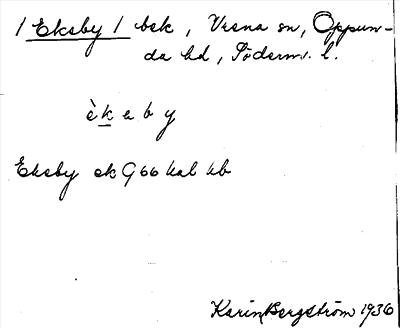 / Eksby / bsk, Vrena sn, Oppun-
da hd, Söderm. l.
è k a b y
Eksby ek G 66 kal kb
Karin Bergström 1936